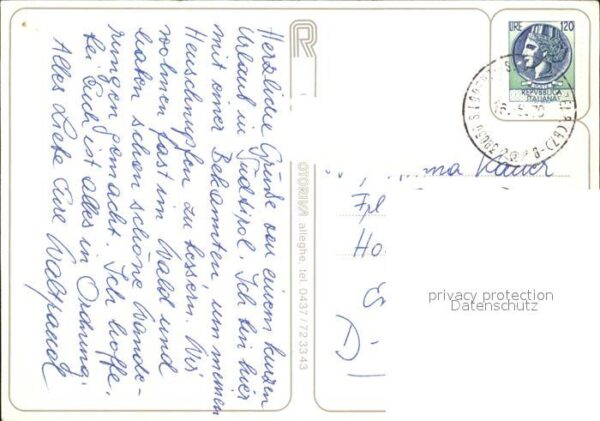 Herzliche Grüße von einem kurzen
Urlaub in Südtirol. Ich bin hier
mit einer Bekannten um meinen
Heuschnupfen zu bessern. Wir
wohnen fast im Wald und
haben schon schöne Wande-
rungen gemacht. Ich hoffe,
bei Euch ist alles in Ordnung.
Alles Liebe Eure Waltraud
R
OTORIVA alleghe, tel. 0437/723343
LIRE 120
REPVBBLICA
ITALIANA
Kauer
Fpl
Ho
D-
privacy protection
Datenschutz